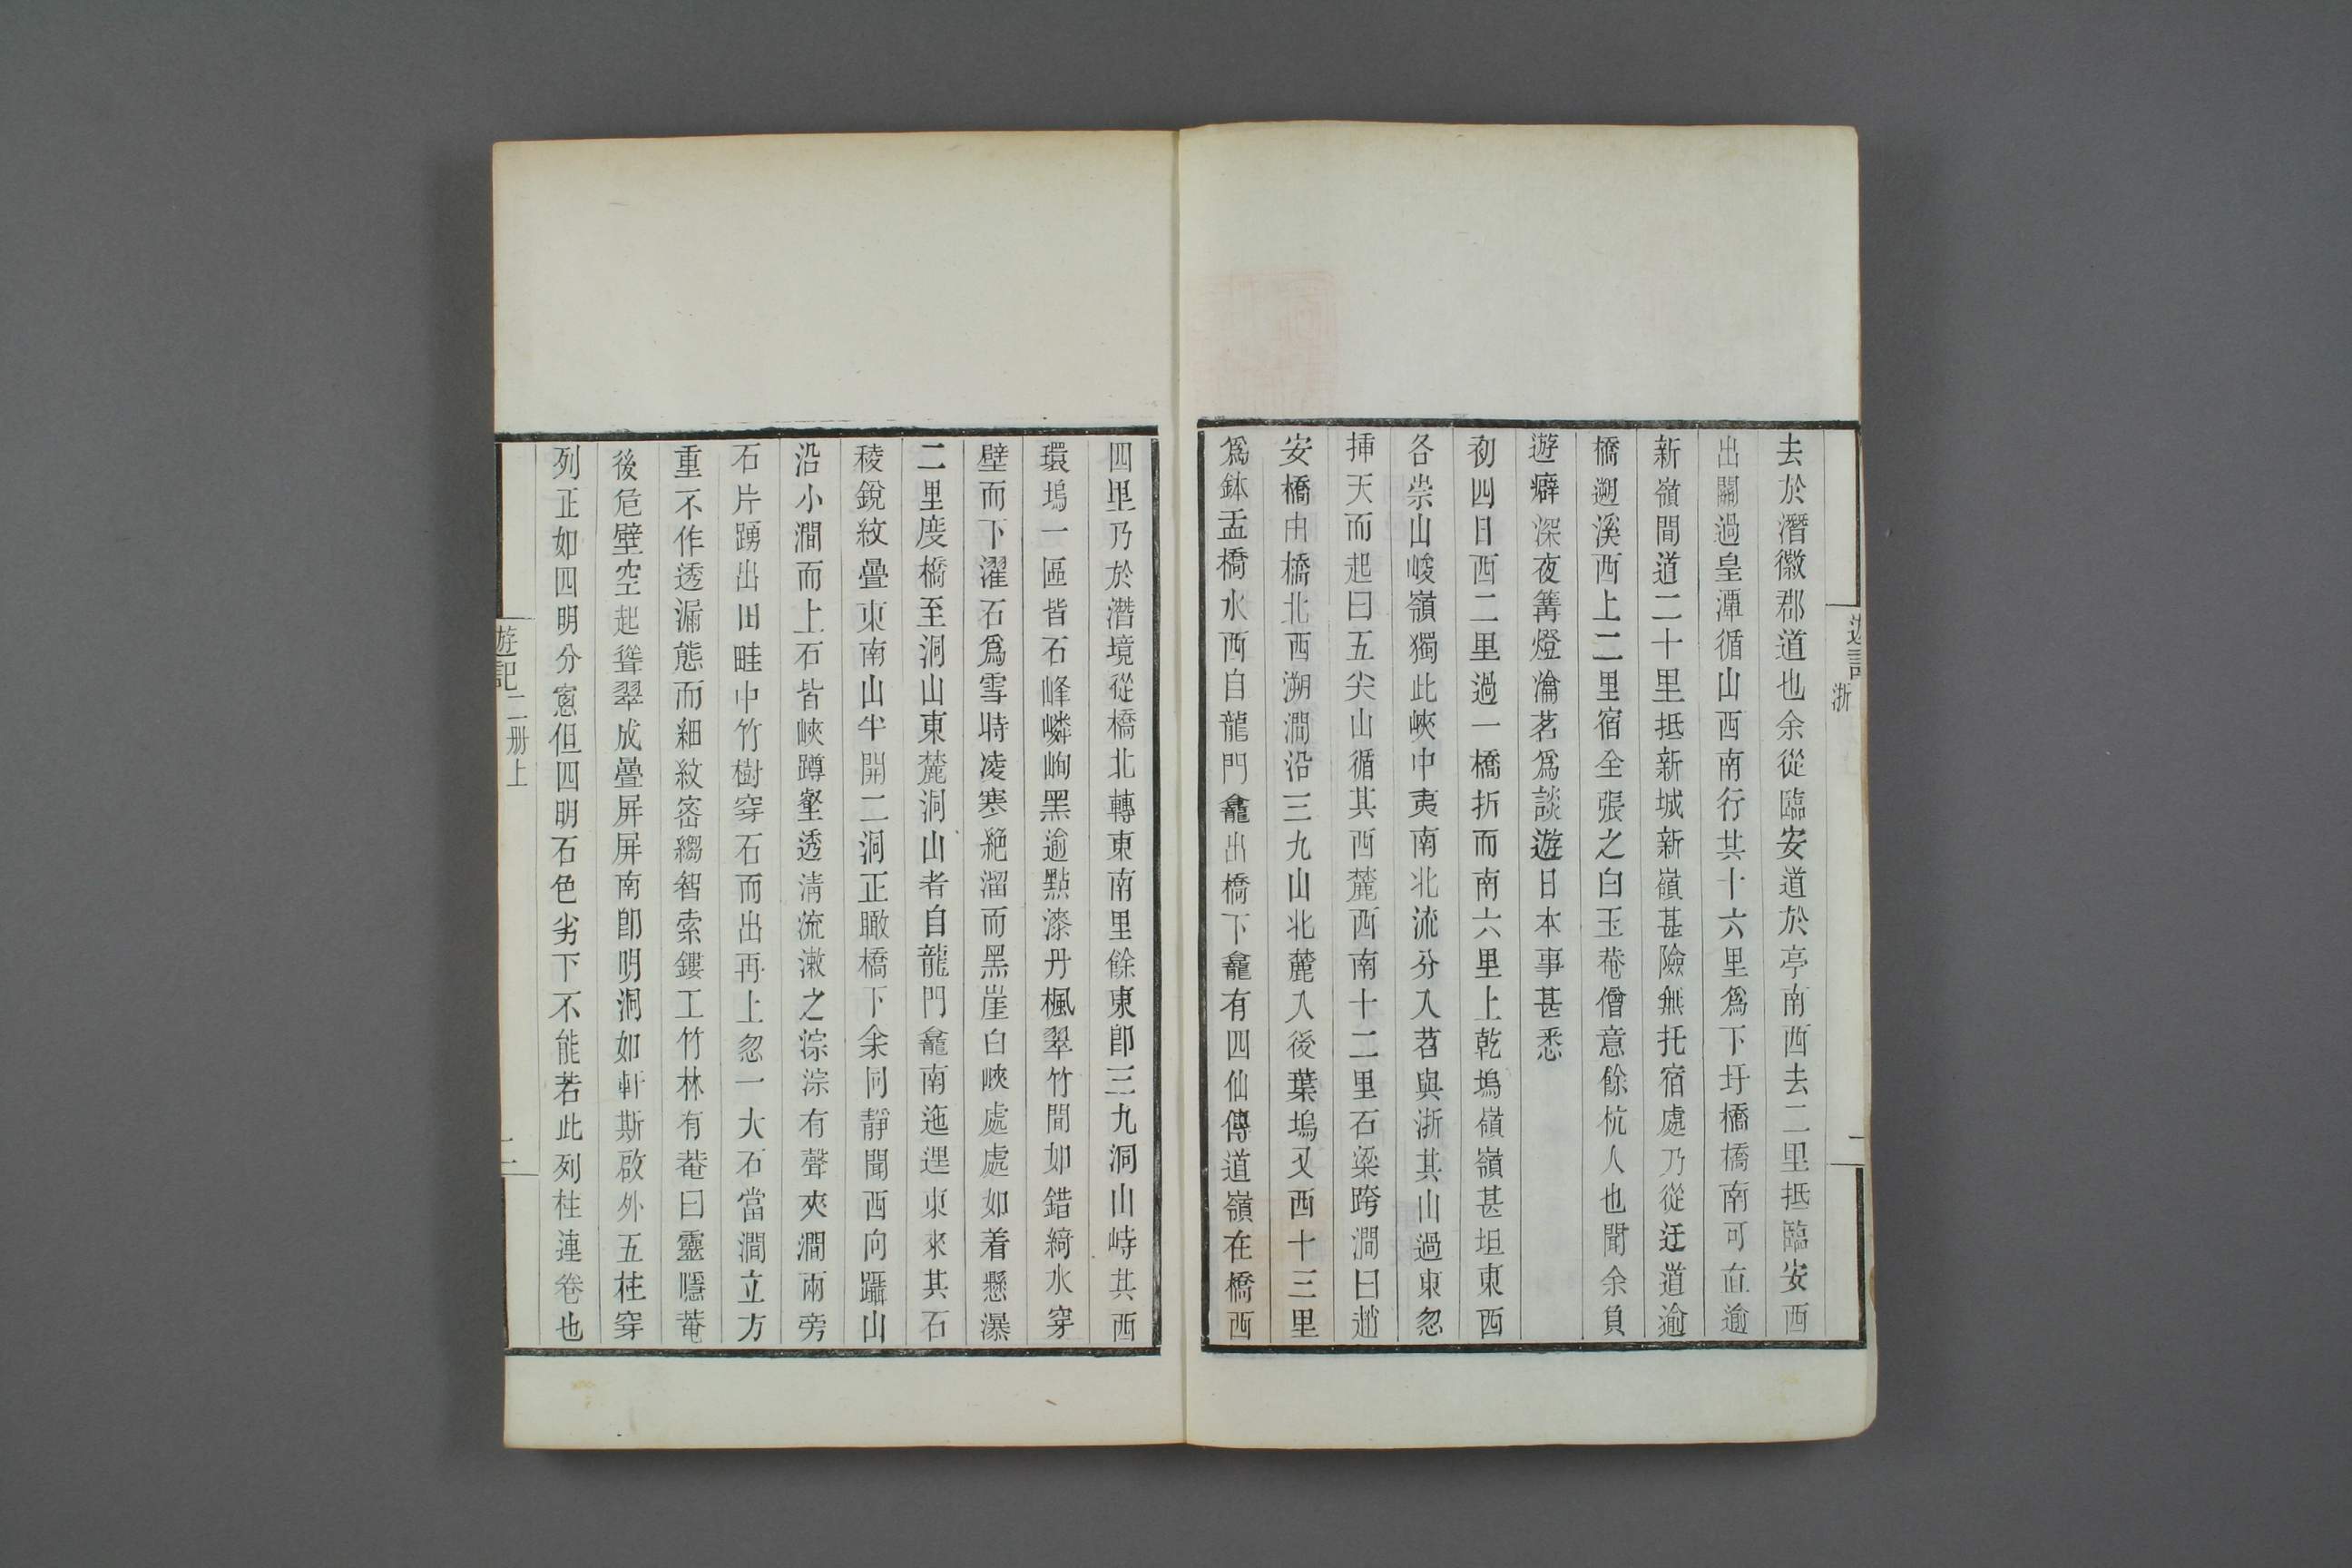 遊記
浙
去於潛徽郡道也余從臨安道於亭南西去二里抵臨安西
出關過皇潭循山西南行共十六里爲下圩橋橋南可直逾
新嶺間道二十里抵新城新嶺甚險無托宿處乃從迂道逾
橋遡溪西上二里宿全張之白玉菴僧意餘杭人也聞余負
遊癖深夜篝燈瀹茗爲談遊日本事甚悉
初四日西二里過一橋折而南六里上乾塢嶺嶺甚坦東西
各崇山峻嶺獨此峽中夷南北流分入苕與浙其山過東忽
揷天而起曰五尖山循其西麓西南十二里石梁跨澗曰趙
安橋由橋北西溯澗沿三九山北麓入後葉塢又西十三里
爲鉢盂橋水西自龍門龕出橋下龕有四仙傳道嶺在橋西
四里乃於潛境從橋北轉東南里餘東卽三九洞山峙其西
環塢一區皆石峰嶙峋黑逾點漆丹楓翠竹間如錯綺水穿
壁而下濯石爲雪時凌寒絕溜而黑崖白峽處處如着懸瀑
二里度橋至洞山東麓洞山者自龍門龕南迤逞東來其石
稜銳紋疊東南山半開二洞正瞰橋下余同靜聞西向躡山
沿小澗而上石皆峽蹲壑透淸流漱之淙淙有聲夾澗兩旁
石片踴出田畦中竹樹穿石而出再上忽一大石當澗立方
重不作透漏態而細紋密縐智索鏤工竹林有菴曰靈隱菴
後危壁空起聳翠成疊屏屏南卽明洞如軒斯啟外五柱穿
列正如四明分窻但四明石色劣下不能若此列柱連卷也
遊記
二册上
二